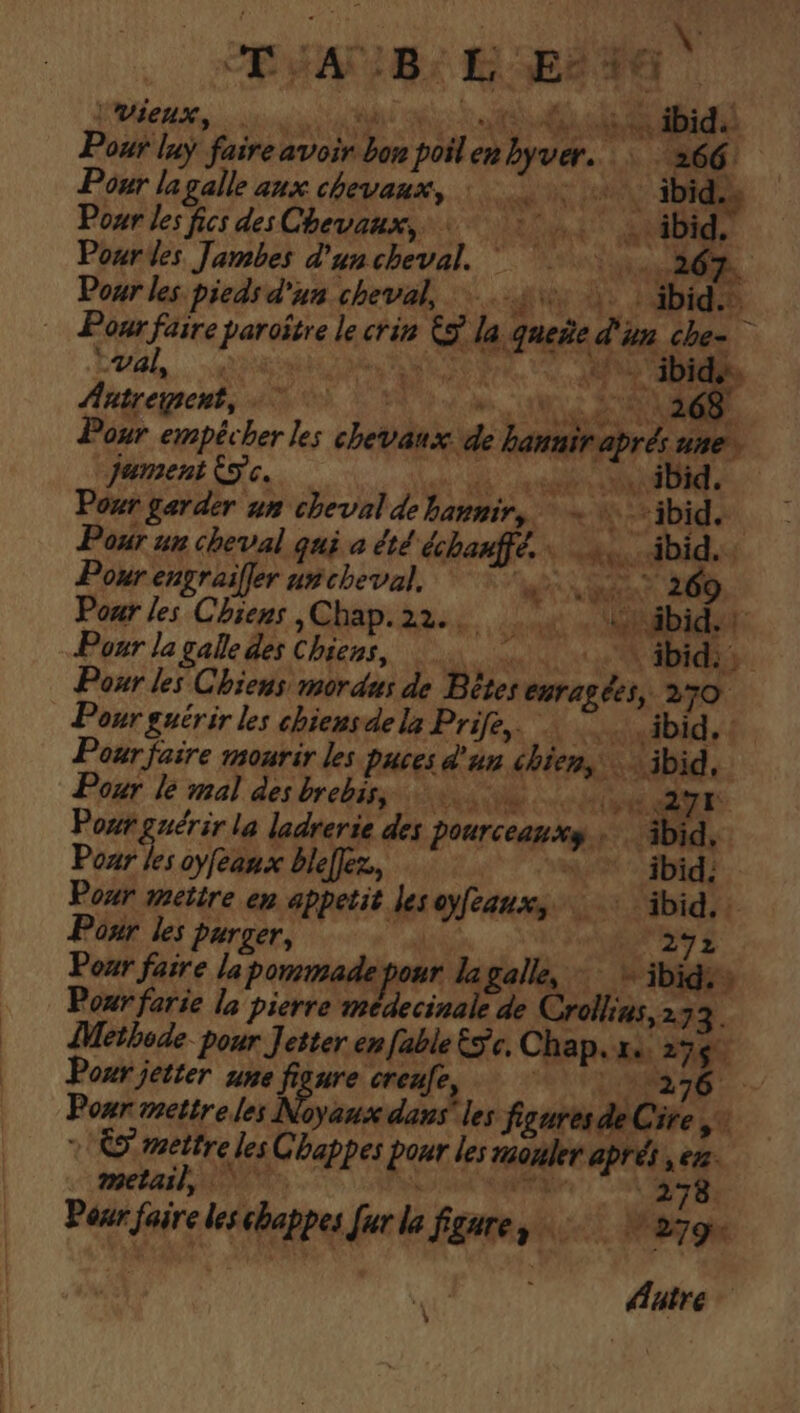 TABLE
vieux, ibid.
Pour luy faire avoir bon poil en hyver. 266
Pour la galle aux chevaux, ibid.
Pour les fics des Chevaux, ibid.
Pour les Jambes d'un cheval. 267.
Pour les pieds d'un cheval, ibid.
Pour faire paroître le crin & la queüe d'un che-
val, ibid.
Autrement, 268
Pour empêcher les chevaux de hannir aprés une
jument &c. ibid.
Pour garder un cheval de hannir, ibid.
Pour un cheval qui a été échauffé. ibid.
Pour engraiſſer un cheval. 269
Pour les Chiens, Chap. 22. ibid.
Pour la galle des Chiens, ibid.
Pour les Chiens mordus de Bêtes enragées, 270
Pour guérir les chiens de la Priſe, ibid.
Pour faire mourir les puces d'un chien, ibid.
Pour le mal des brebis, 271
Pour guérir la ladrerie des pourceaux, ibid.
Pour les oyſeaux bleſſez, ibid.
Pour mettre en appetit les oyſeaux, ibid.
Pour les purger, 272
Pour faire la pommade pour la galle, ibid.
Pour farie la pierre médecinale de Crollius, 273.
Methode pour Jetter en ſable &c. Chap. 1. 275
Pour jetter une figure creuſe, 276
Pour mettre les Noyaux dans les figures de Cire,
& mettre les Chappes pour les mouler aprés, en
metail, 278
Pour faire les chappes ſur la figure, 279
Autre